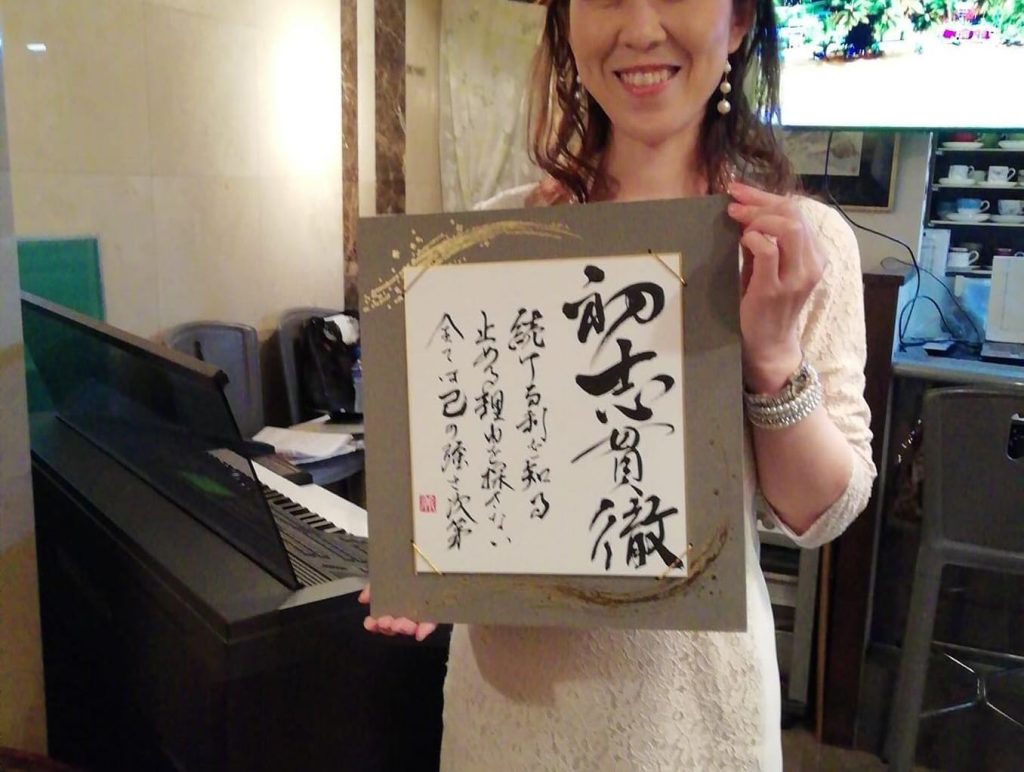 初志貫徹
続ける利を知る
止める理由を探さない
全ては己の強さ次第